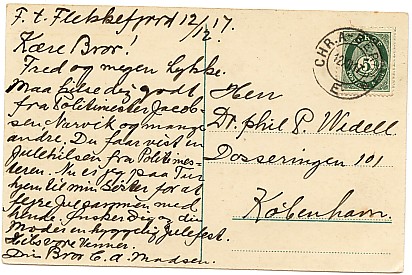 F. t. Flekkefjord 12/12. 17.
Kære Bror!
Fred og megen Lykke.
Maa hilse dig godt
fra Politimester Jacob-
sen Narvik og mange
andre. Du faar vist en
Julehilsen fra Politimes-
teren. Nu er jeg paa Tur
hjem til min Søster for at
fejre Julsammen med
hende. Ønsker dig og din
Moder en hyggelig Julefest.
Hils vore Venner.
Din Bror C. A. Madsen.
Herr
Dr. phil P. Widell
Dosseringen 101
København.
CHR.A-BER
5